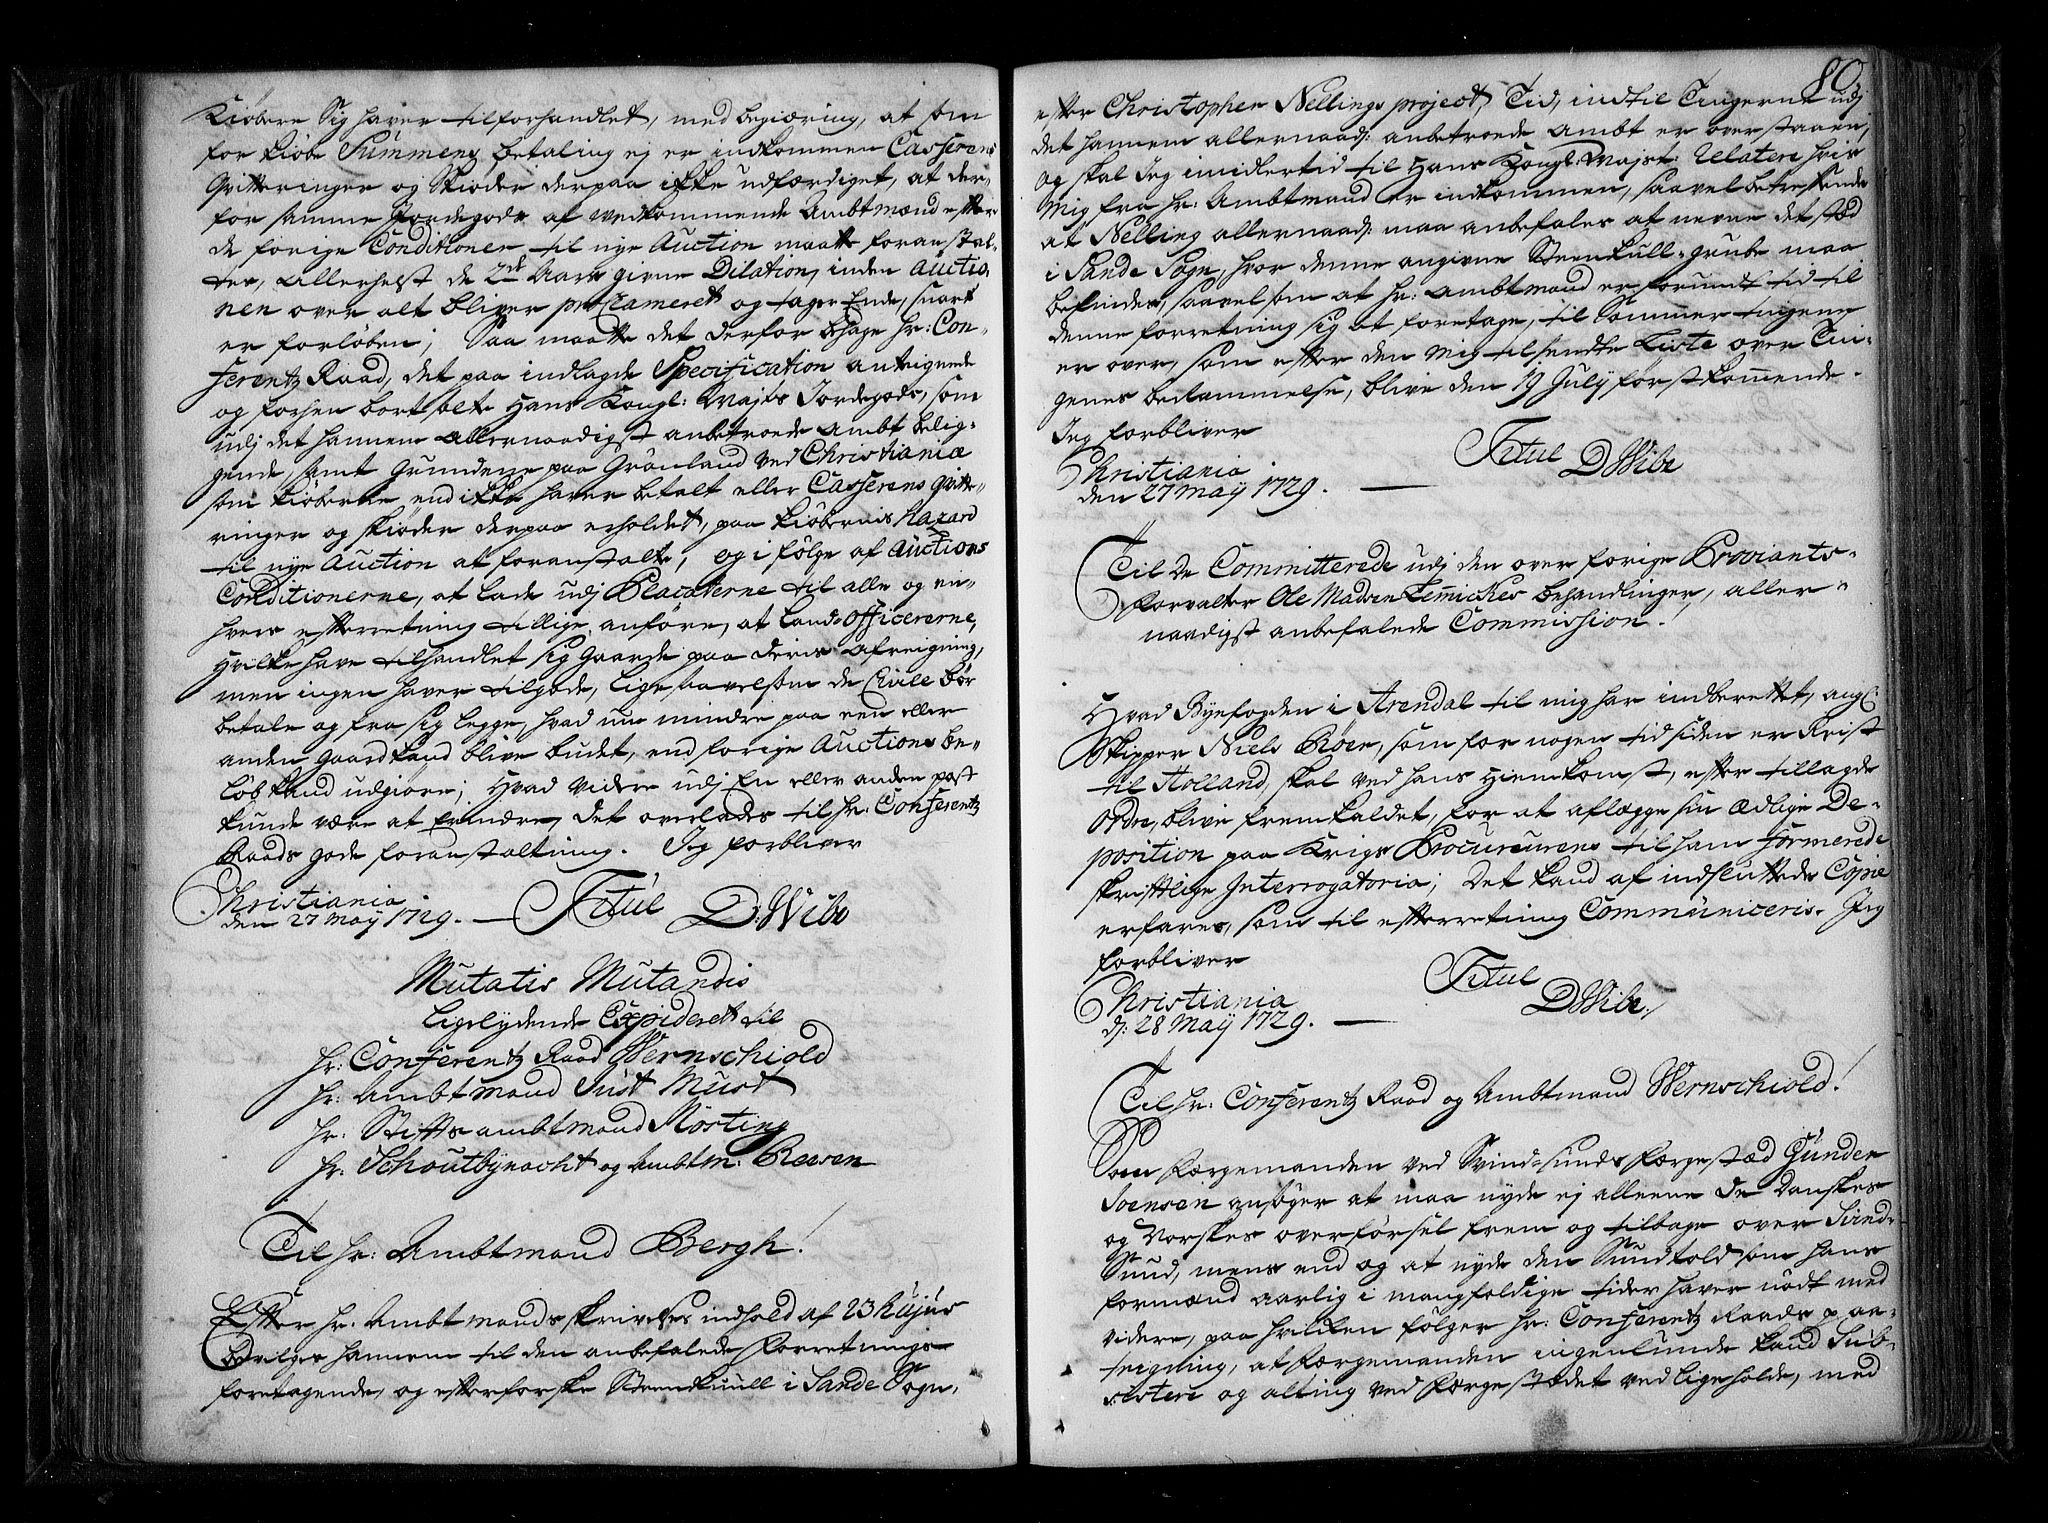 Kiöbere Sig haver tilforhandlet, med begiæring, at som
for kiöbe Summens betaling ej er indkommen Casserens
Qvitteringer og Skiöder derpaa ikke udfærdiget, at der-
for samme Jordegods af vedkommende Ambtmænd efter
de forige Conditioner til nye Auction maatte foranstal-
tes, allerhelst de 2de Aars givne Dilation, inden Auctio-
nen over alt bliver proclameret og tager Ende, snart
er forlöben; Saa maatte det derfor behage hr: Con-
ferentz Raad, det paa indlagde Specification antegnede
og forhen bortsolte Hans Kongl: Mayts Jordegods, som
udj det hannem allernaadigst anbetroede Ambt belig-
gende, samt Grundene paa Grönland ved Christiania
som kiöberne end ikke haver betalt eller Casserens Qvitte-
ringer og skiöder derpaa erholdet, paa kiöbernis Hazard
til nye Auction at foranstalte, og i fölge af Auctions
Conditionerne, at lade udj Placaterne til alle og en-
hvers efterretning tillige anföre, at Land-Officererne,
Hvilke have tilhandlet sig Gaarde paa deris afreigning,
men ingen haver tilgode, lige saavelsom de Civile bör
betale og fra sig legge, hvad um mindre paa een eller
anden Gaard kand blive budet, end forige Auctions be-
löb kand udgiöre; Hvad videre udj En eller anden post
kunde være at Erindre, det overlades til hr: Conferentz
Raads gode foranstaltning. Jeg forbliver
Christiania
den 27 May 1729. — Titul D: Wibe
Mutatis Mutandis
Ligelydende Expideret til
hr: Conferentz Raad Wernschiold
hr: Ambtmand Just Must
hr: Stiftsambtmand Mösting
hr: Schoutbynacht og Ambtm: Reesen
Til hr: Ambtmand Bergh!
Efter hr: Ambtmands skrivelses indhold af 23 hujus
bevilges hannem til den anbefalede Forretnings
foretagende, og efterforske Steenkuull i Sande Sogn,
80
efter Christopher Nellings project, Tid, indtil Tingerne udj
det hannem allernaads: anbetroede Ambt er overstaaen,
og skal Jeg imidlertid til Hans Kongl: Mayst: relatere hvis
Mig fra hr: Ambtmand er indkommen, saavel betreffende
at Nelling allernaads: maa anbefales at nevne det stæd
i Sande Sogn, hvor denne angivne Steenkull-grube maa
befindes, saavelsom at hr: Ambtmand er forundt tid til
denne forretning sig at foretage, til Sommer tingene
er over, som efter den Mig tilsendte Liste over Tin-
genes bestemmelse, blive den 19 July förstkommende.
Jeg forbliver
Titul
Christiania DWibe
den 27 May 1729. —
Til De Committerede udj den over forige Proviants-
Forvalter Ole Madsen Lemickes behandlinger, aller-
naadigst anbefalede Commission!
Hvad Byefogden i Arendal til mig har indberettet, ang:
Skipper Niels Röer, som for nogen tid siden er Reist
til Holland, skal ved hans Hiemkomst, efter tillagde
Ordre, blive fremkaldet, for at aflegge sin Ædlige De-
position paa Krigs Procureurens til ham formerede
skriftlige Interrogatoria; Det kand af indsluttede Copie
erfares, som til efterretning Communiceris. Jeg
forbliver
Titul
Christiania DWibe.
d: 28 May 1729. —
Til hr: Conferentz Raad og Ambtmand Wernschiold!
Som Færgemanden ved Svindesunds Færgestæd Gunder
Svensen ansöger at maa nyde ej alleene de Danskes
og Norskes overförsel frem og tilbage over Svinde-
Sund, mens end og at nyde den Sundtold som hans
Formænd aarlig i mangfoldige tider haver nödt med
videre, paa hvilken fölger hr: Conferentz Raads paa-
tegning, at Færgemanden ingenlunde kand Sub-
sistere og alting ved Færgestædet vedligeholde, med